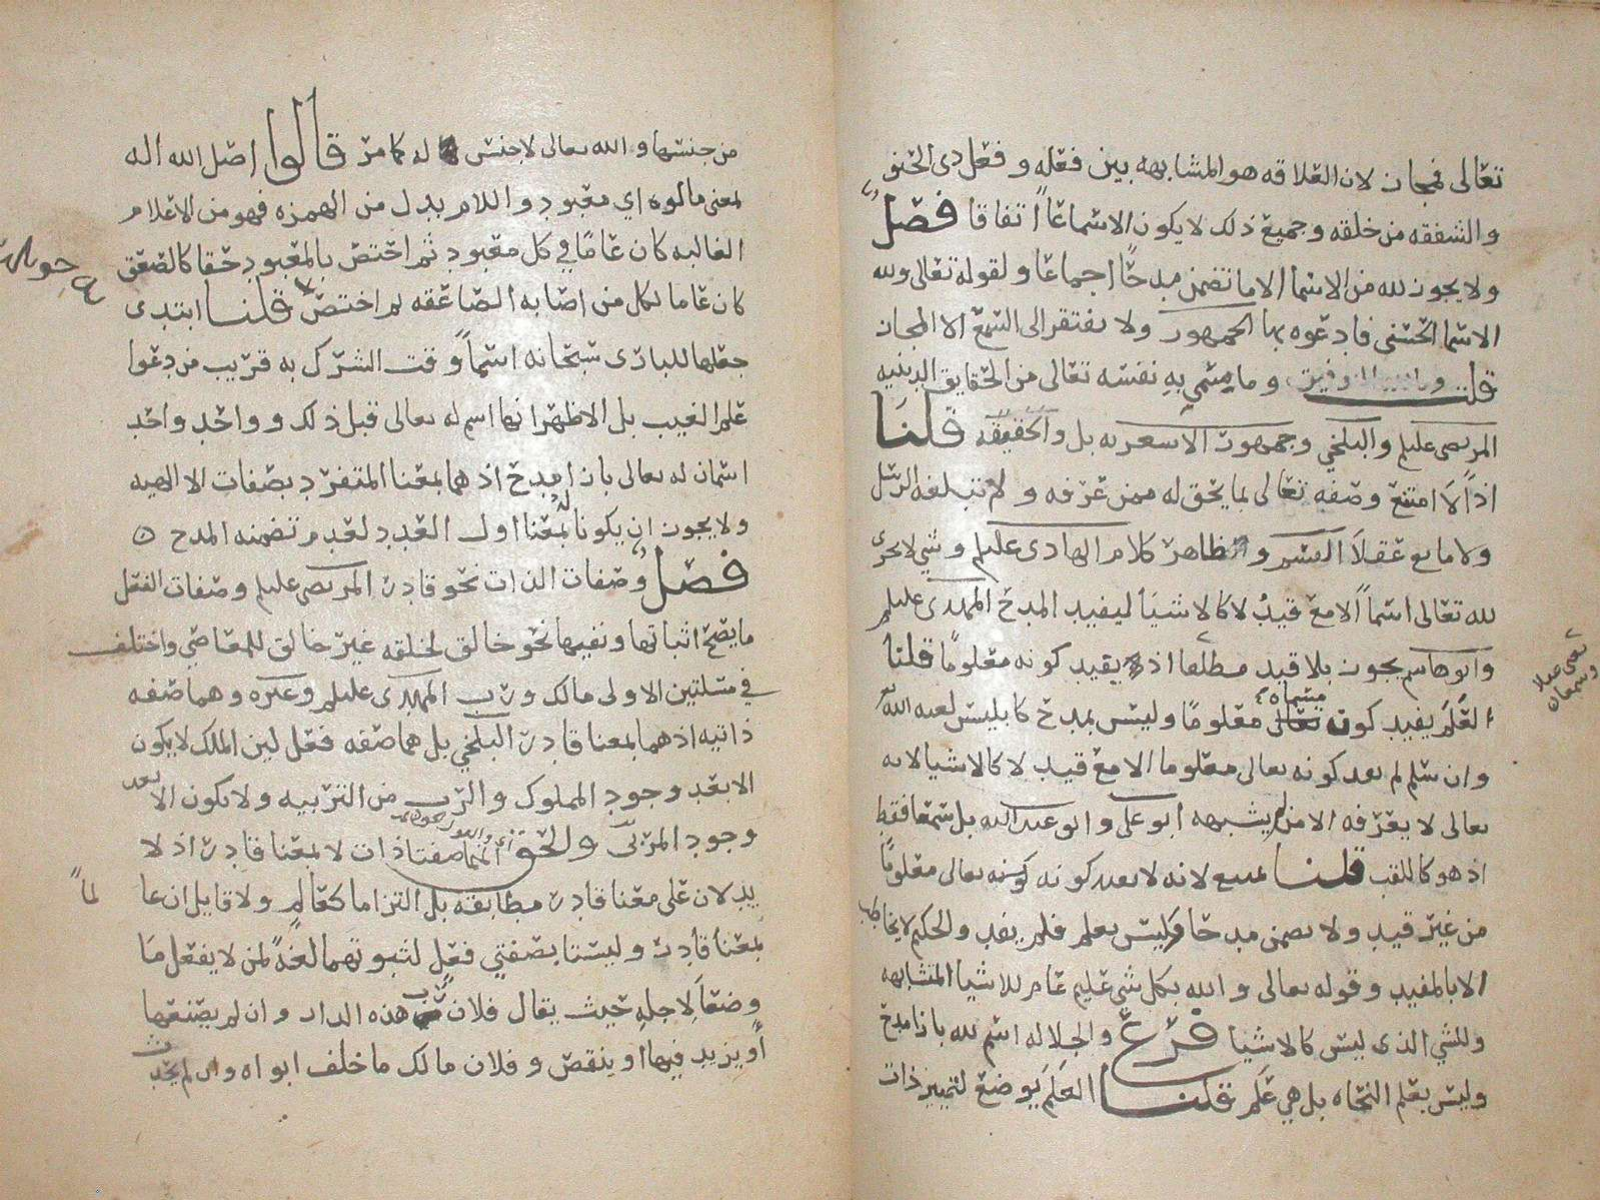 تعالى فمجاز لان العلاقه هو المشابهه بين فعله وفعل ذى الحنو
والشفقه من خلقه وجميع ذلك لا يكون الا سماعاً اتفاقا فصل
ولا يجوز لله من الاسما الا ما تضمن مدحًا اجماعا ولقوله تعالى ولله
الاسما الحسنى فادعوه بها الجمهور ولا يفتقر الى السمع الا المجاز
قلت وبالله التوفيق وما سمي به نفسه تعالى من الحقايق الدينيه
المرتضى عليلم والبلخي وجمهور الاشعريه بل والحقيقه قلنا
اذاً لا امتنع وصفه تعالى بما يحق له ممن عرفه ولم تبلغه الرسل
ولا مانع عقلا وظاهر كلام الهادى عليلم وشي لا يجرى
لله تعالى اسماً الا مع قيد لا كالاشيا ليفيد المدح المهدى عليلم
وابو هاشم يجوز بلا قيد مطلقا اذ يفيد كونه معلومًا قلنا
العلم يفيد كون مسماه معلومًا وليس بمدح كابليس لعنه الله
وان سلم لم يفد كونه تعالى معلوما الا مع قيد لا كالاشيا لانه
تعالى لا يعرفه الا من لم يشبهه ابو علي وابو عبدالله بل سمعا فقط
اذ هو كاللقب قلنا لانه لا يفيد كونه تعالى معلومًا
من غير قيد ولا تضمن مدحا وليس بعلم فلم يفد والحكيم لا يخاطب
الا بالمفيد وقوله تعالى والله بكل شي عليم عام للاشيا المتشابهه
وللشي الذى ليس كالاشيا فرع والجلاله اسم لله بازا مدح
وليس بعلم النحاه بل هي علم قلنا العلم يوضع لتمييز ذات
من جنسها والله تعالى لا جنس له كما مر قالوا اصل الله اله
لمعنى مالوه اي معبود واللام بدل من الهمزه فهو من الاعلام
الغالبه كان عامًا في كل معبود ثم اختص بالمعبود حقا كالصعق
كان عاما لكل من اصابه الصاعقه ثم اختص قلنا ابتدى
جعلها للبارى سبحانه اسماً وقت الشرك به قريب من دعوا
علم الغيب بل الاظهر انها اسم له تعالى قبل ذلك وواحد واحد
اسمان له تعالى بازا مدح اذ هما بمعنا المتفرد بصفات الالاهيه
ولا يجوز ان يكونا له بمعنا اول العدد لعدم تضمنه المدح ٥
فصل وصفات الذات نحو قادر المرتضى عليلم وصفات الفعل
ما يصح اثباتها ونفيها نحو خالق لخلقه غير خالق للمعاصي واختلف
في مسئلتين الاولى مالك ورب المهدى عليلم وغيره وهما صفه
ذاتيه اذ هما بمعنا قادر البلخي بل هما صفه فعل لين الملك لا يكون
الا بعد وجود المملوك والرب من التربيه ولا يكون الا بعد
وجود المربى والحق انهما صفتا ذات لا بمعنا قادر اذ لا
يدلان على معنا قادر مطابقه بل التزاما كعالم ولا قايل ان عالماً
بمعنا قادر وليستا بصفتي فعل لثبوتهما لغةً لمن لا يفعل ما
وضعا لاجله حيث يقال فلان رب هذه الدار وان لم يصنعها
أو يزيد فيها او ينقص وفلان مالك ما خلف ابواه وان لم يحدث